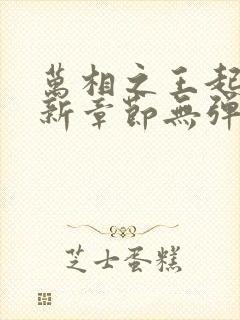 萬相之王起
新章節無彈
芝士蛋糕